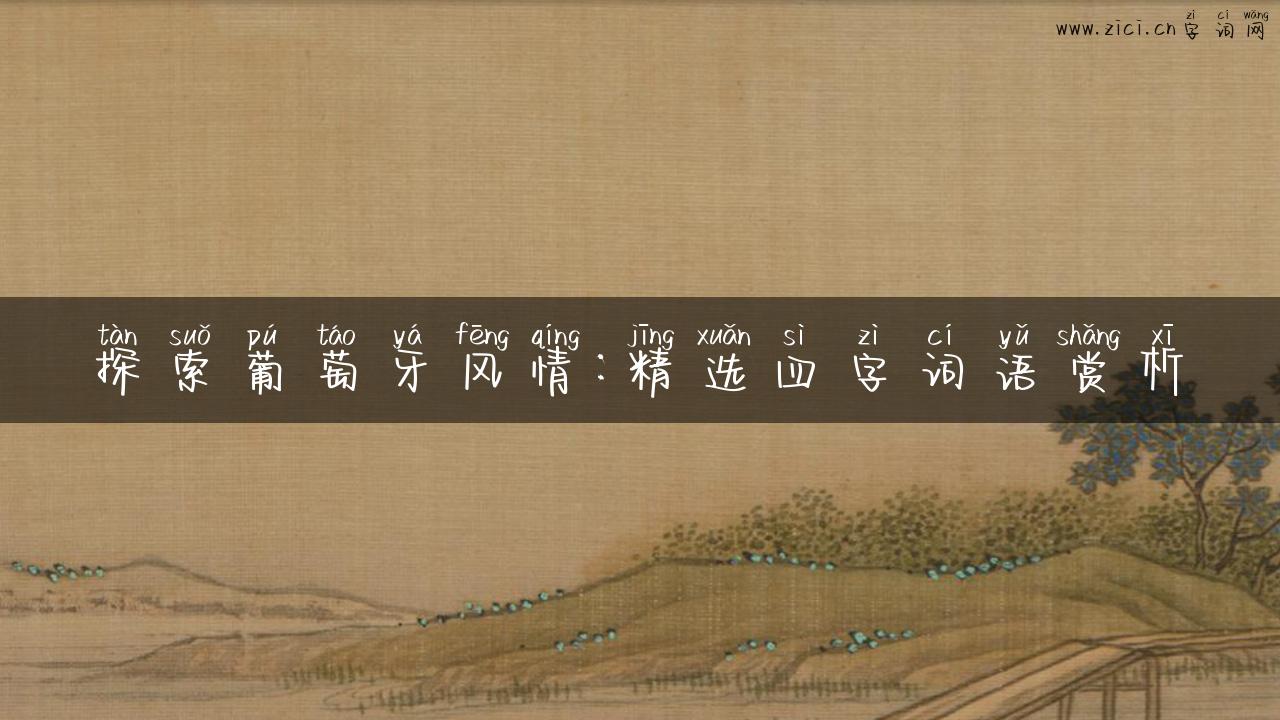 zì cí wǎng
www.zici.cn字词网
tàn suǒ pú táo yá fēng qíng jīng xuǎn sì zì cí yǔ shǎng xī
探索葡萄牙风情:精选四字词语赏析